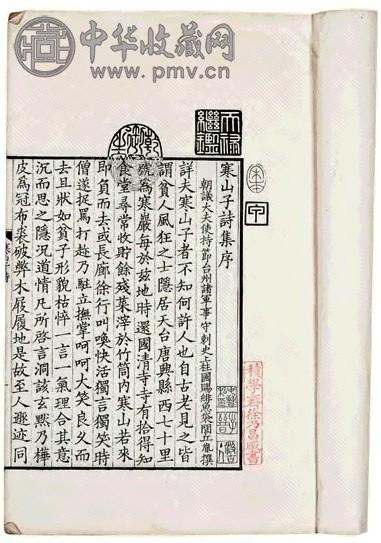 中华收藏网
www.pmv.cn
天祿
繼鑑
宋本
甲
寒山子詩集序
朝議大夫使持節台州諸軍事守刺史上柱國賜緋魚袋閭丘胤撰
詳夫寒山子者不知何許人也自古老見之皆
謂貧人風狂之士隱居天台唐興縣西七十里
號為寒巖每於茲地時還國清寺寺有拾得知
食堂尋常收貯餘殘菜滓於竹筒內寒山若來
即負而去或長廊徐行叫喚快活獨言獨笑時
僧遂捉罵打趁乃駐立撫掌呵呵大笑良久而
去且狀如貧子形貌枯悴一言一氣理合其意
沉而思之隱況道情凡所啓言洞該玄默乃樺
皮為冠布裘破弊木屐履地是故至人遯迹同
積學齋徐乃昌藏書